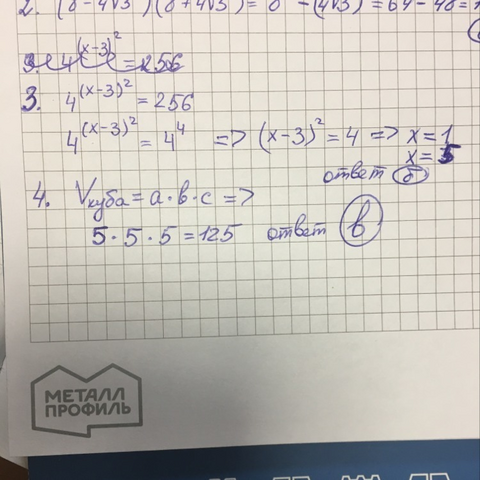 2. (8-4√3)(8+4√3) = 8² - (4√3)² = 64 - 48 = 1
3. 4^(x-3)² = 256
3. 4^(x-3)² = 256
4^(x-3)² = 4⁴ => (x-3)² = 4 => x = 1
x = 5
ответ б
4. Vкуба = a · b · c =>
5 · 5 · 5 = 125 ответ в
МЕТАЛЛ
ПРОФИЛЬ